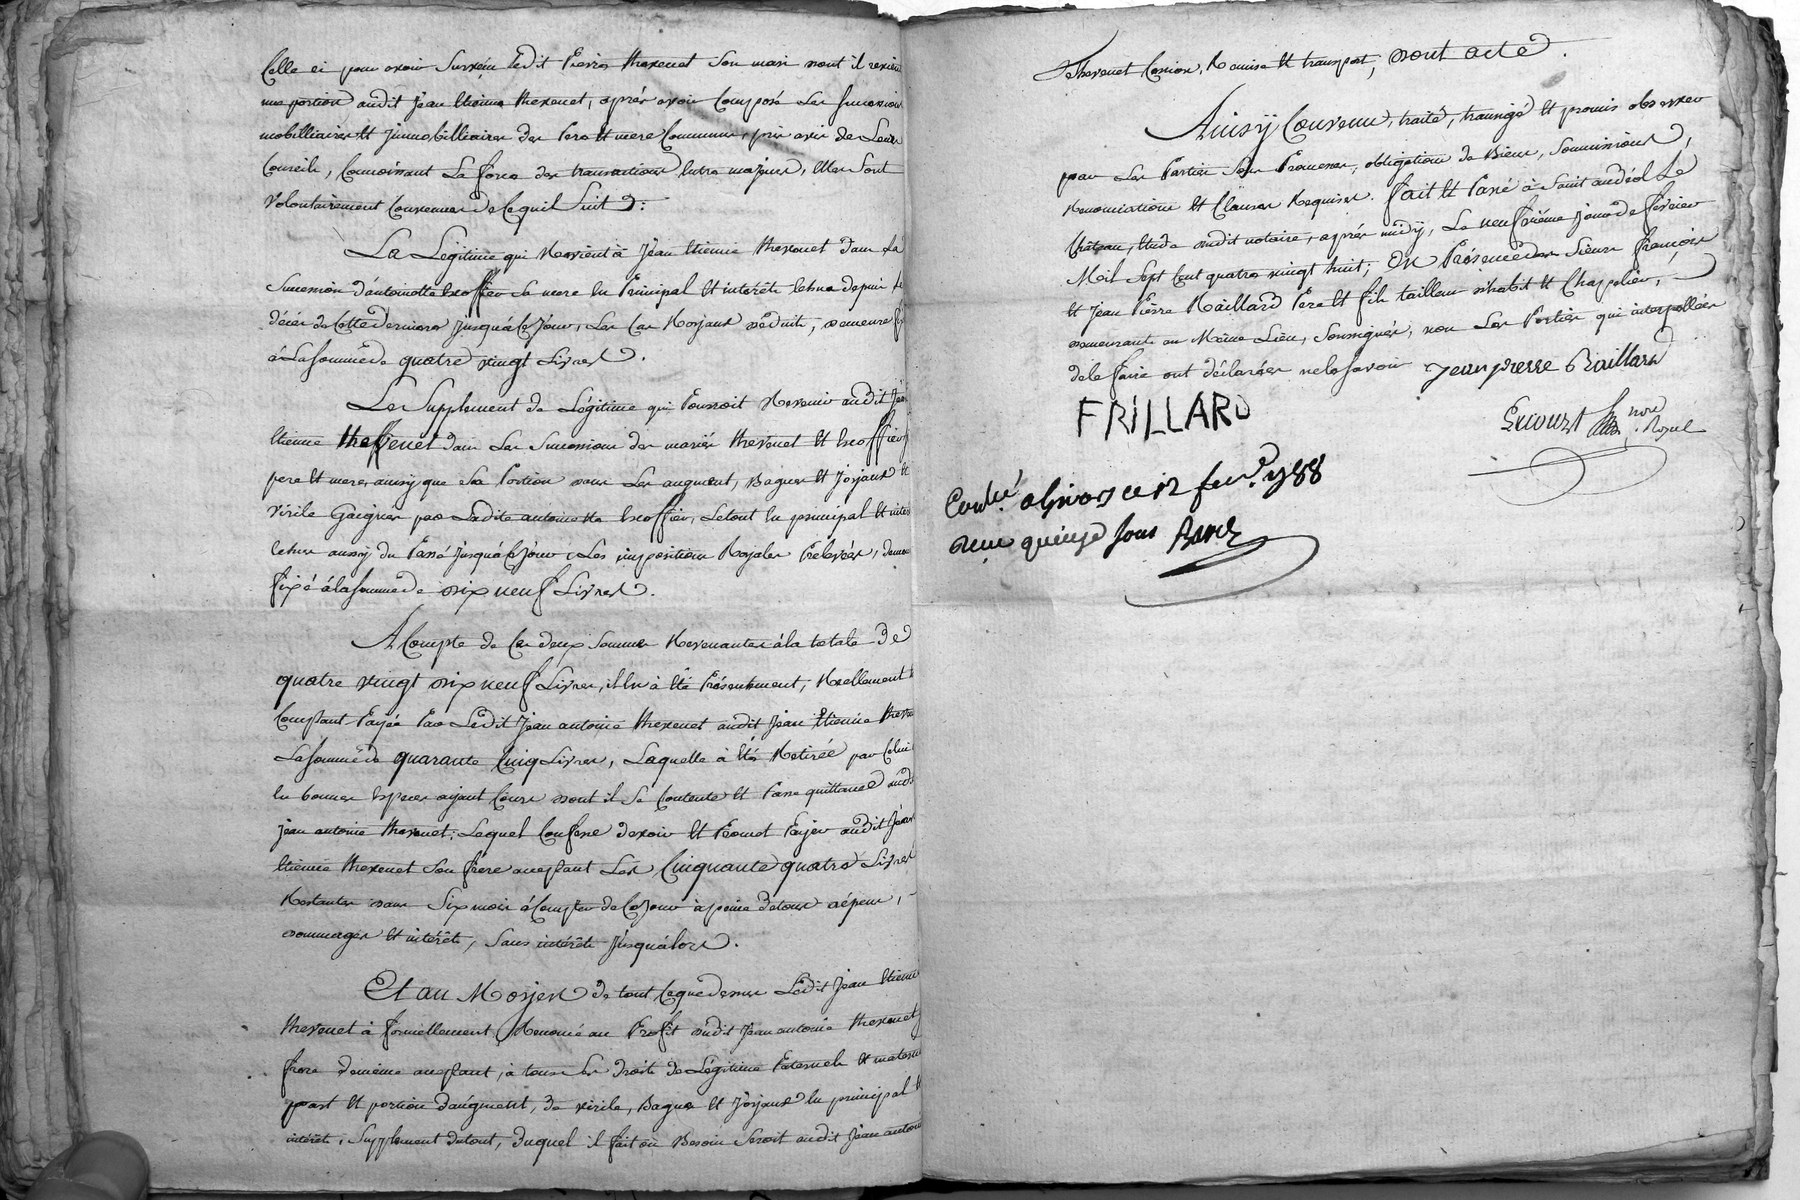 Celle ci pour avoir survécu ledit Pierre thevenet son mari dont il revient
une portion audit jean Etienne thevenet, aprés avoir composé les successions
mobilliaires et jmmobilliaires des Pere et mere Communs, pris avis de Leurs
Conseils, Connoissant La force des transactions Entre majeurs, Elles sont
volontairement Convenues de Ce quil suit :
La Légitime qui Revient à jean Etienne thevenet dans La
Succession d'antoinette Escoffier sa mere En Principal Et interêts Echus depuis le
décés de Cette derniere jusqu'à Ce jour, Les Cas Royaux déduits, demeure fixé
à La somme de quatre vingt Livres.
Le Supplement de Légitime qui Pourroit Revenir audit jean
Etienne thevenet dans Les Successions des mariés thevenet Et Escoffier
pere Et mere, ainsy que sa Portion dans Les augment, Bagues Et Joyaux Et
virile Gaignés par Ladite antoinette Escoffier, Le tout En principal Et interets
Echus aussy du Passé jusqu'à Ce jour Les impositions Royales Prelevées, demeure
fixé à la somme de dix neuf Livres.
A Compte de Ces deux sommes Revenantes à la totale de
quatre vingt dix neuf Livres, il En à Eté Présentement, Reellement Et
Comptant Payée Par Ledit jean antoine thevenet audit jean Etienne thevenet
La somme de quarante Cinq Livres, Laquelle à Eté Retirée par Celui ci
En bonnes Especes ayant Cours dont il se Contente Et Passe quittance audit
jean antoine thevenet; Lequel Confesse devoir Et Promet Payer audit jean
Etienne thevenet son frere acceptant Les Cinquante quatre Livres
Restantes dans Six mois à Compter de Ce jour à peine de tous dépens,
dommages Et intérêts, Sans intérêts jusqu'alors.
Et au Moyen de tout Ce que dessus Ledit jean Etienne
thevenet à formellement Renoncé au Profit dudit jean antoine thevenet
frere de même acceptant, à tous Ses droits de Légitime Paternels Et maternels
part Et portion d'augment, de virile, Bagues Et Joyaux En principal Et
intérêts, Supplement du tout, duquel il fait ou Besoin Seroit audit jean antoine
Thevenet Cession, Remise Et transport, dont acte.
Ainsy Convenu, traité, transigé Et promis observer
par Les Parties Sous Promesses, obligations de Biens, Soumissions,
Renonciations Et Clauses Requises. fait Et Passé à Saint andéol Le
Château, Etude dudit notaire, aprés midy, Le neuf fevrier
Mil Sept Cent quatre vingt huit; En Présence des Sieurs françois
Et Jean Pierre Raillard Pere Et fils tailleur d'habit Et Chapelier,
demeurants au Même Lieu, Soussignés, non Les Parties qui interpellées
de le faire ont déclarées ne le savoir jean pierre Raillard
FRILLARD
Royal
Conlé. a Givors ce 12 fevr. 1788
Recu quinze sous